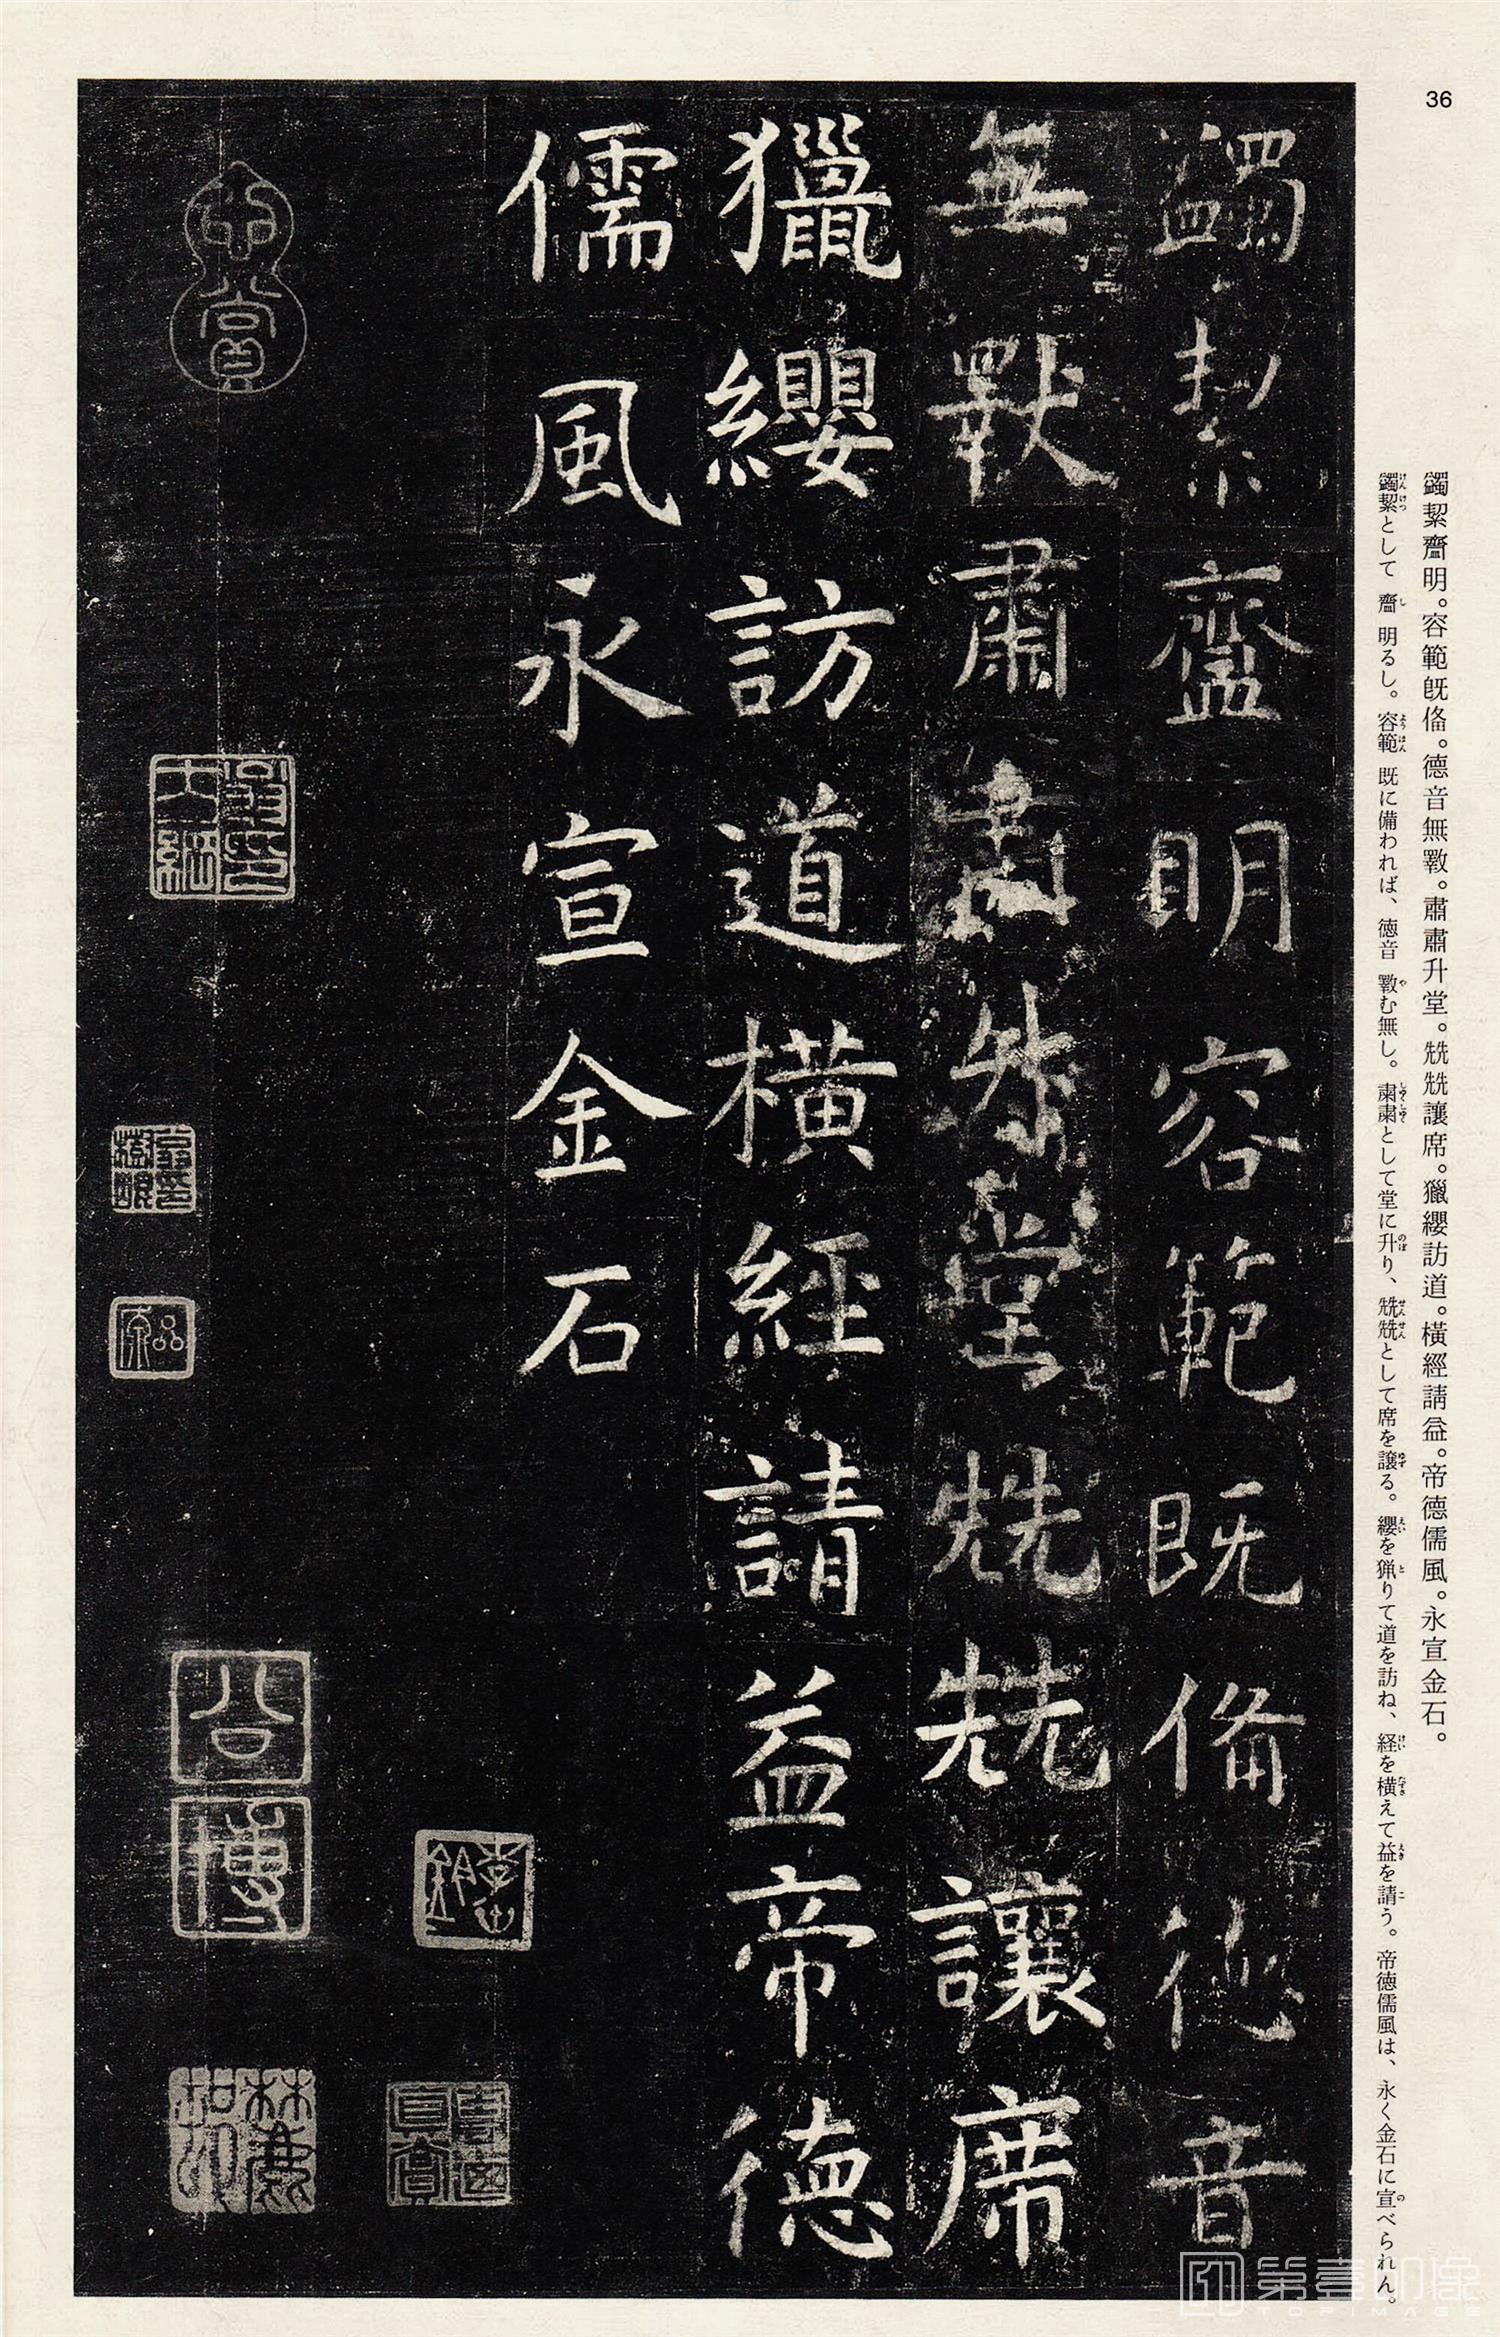 36
蠲絜齍明。容範既俻。德音無斁。肅肅升堂。兟兟讓席。獵纓訪道。橫經請益。帝德儒風。永宣金石。
蠲絜として齍明るし。容範既に備われば、徳音斁む無し。粛粛として堂に升り、兟兟として席を譲る。纓を猟りて道を訪ね、経を横えて益を請う。帝徳儒風は、永く金石に宣べられん。
蠲絜齍明容範既俻德音
無斁肅肅升堂兟兟讓席
獵纓訪道橫經請益帝德
儒風永宣金石
公博
第壹印像
TOPIMAGE